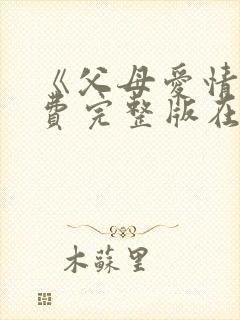 《父母爱情
费完整版在
木蘇里